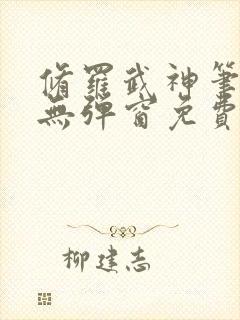 脩羅武神筆
無彈窗免費
柳建志